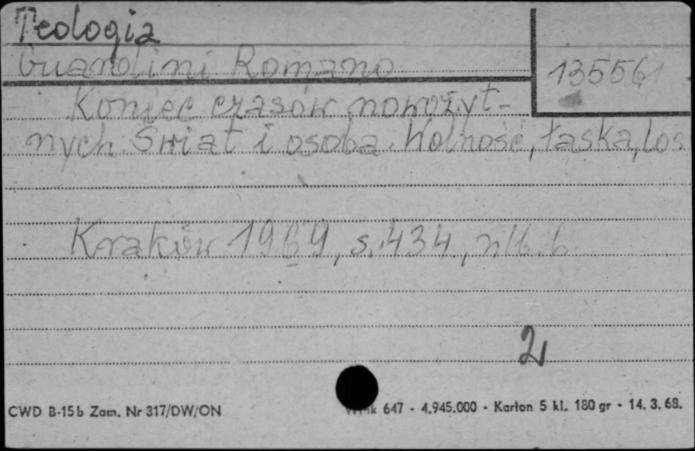 Teologia
Guardini Romano
135561
Koniec czasów nowożyt-
nych. Świat i osoba. Wolność, łaska, los
Kraków 1969, s. 434, nlb. 6
2
CWD B-15b Zam. Nr 317/DW/ON
647 - 4.945.000 - Karton 5 kl. 180 gr - 14. 3. 68.